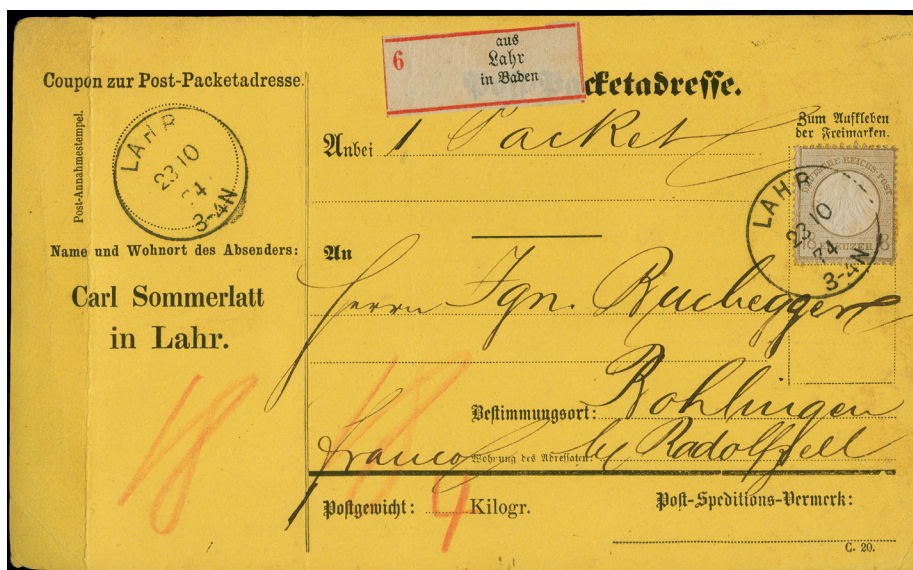 Coupon zur Post-Packetadresse.
Post-Annahmestempel.
LAHR
23 10
74.
3-4N
Name und Wohnort des Absenders:
Carl Sommerlatt
in Lahr.
18
6
aus
Lahr
in Baden
Packetadresse.
Anbei 1 Packet
Zum Aufkleben
der Freimarken.
DEUTSCHE REICHS-POST
18 KREUZER 18
LAHR
23 10
74
3-4N
An
Herrn Ign. Ruhegger
Bestimmungsort: Bohlingen
franco b/ Radolfzell
Wohnung des Adressaten:
18
Postgewicht: 4 Kilogr.
Post-Speditions-Vermerk:
C. 20.